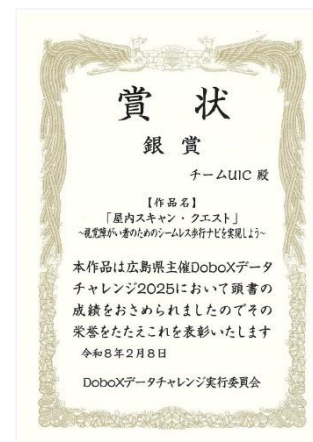 賞 状
銀 賞
チームUIC 殿
【作品名】
「屋内スキャン・クエスト」
~視覚障がい者のためのシームレス歩行ナビを実現しよう~
本作品は広島県主催DoboXデータ
チャレンジ2025において頭書の
成績をおさめられましたのでその
栄誉をたたえこれを表彰いたします
令和8年2月8日
DoboXデータチャレンジ実行委員会